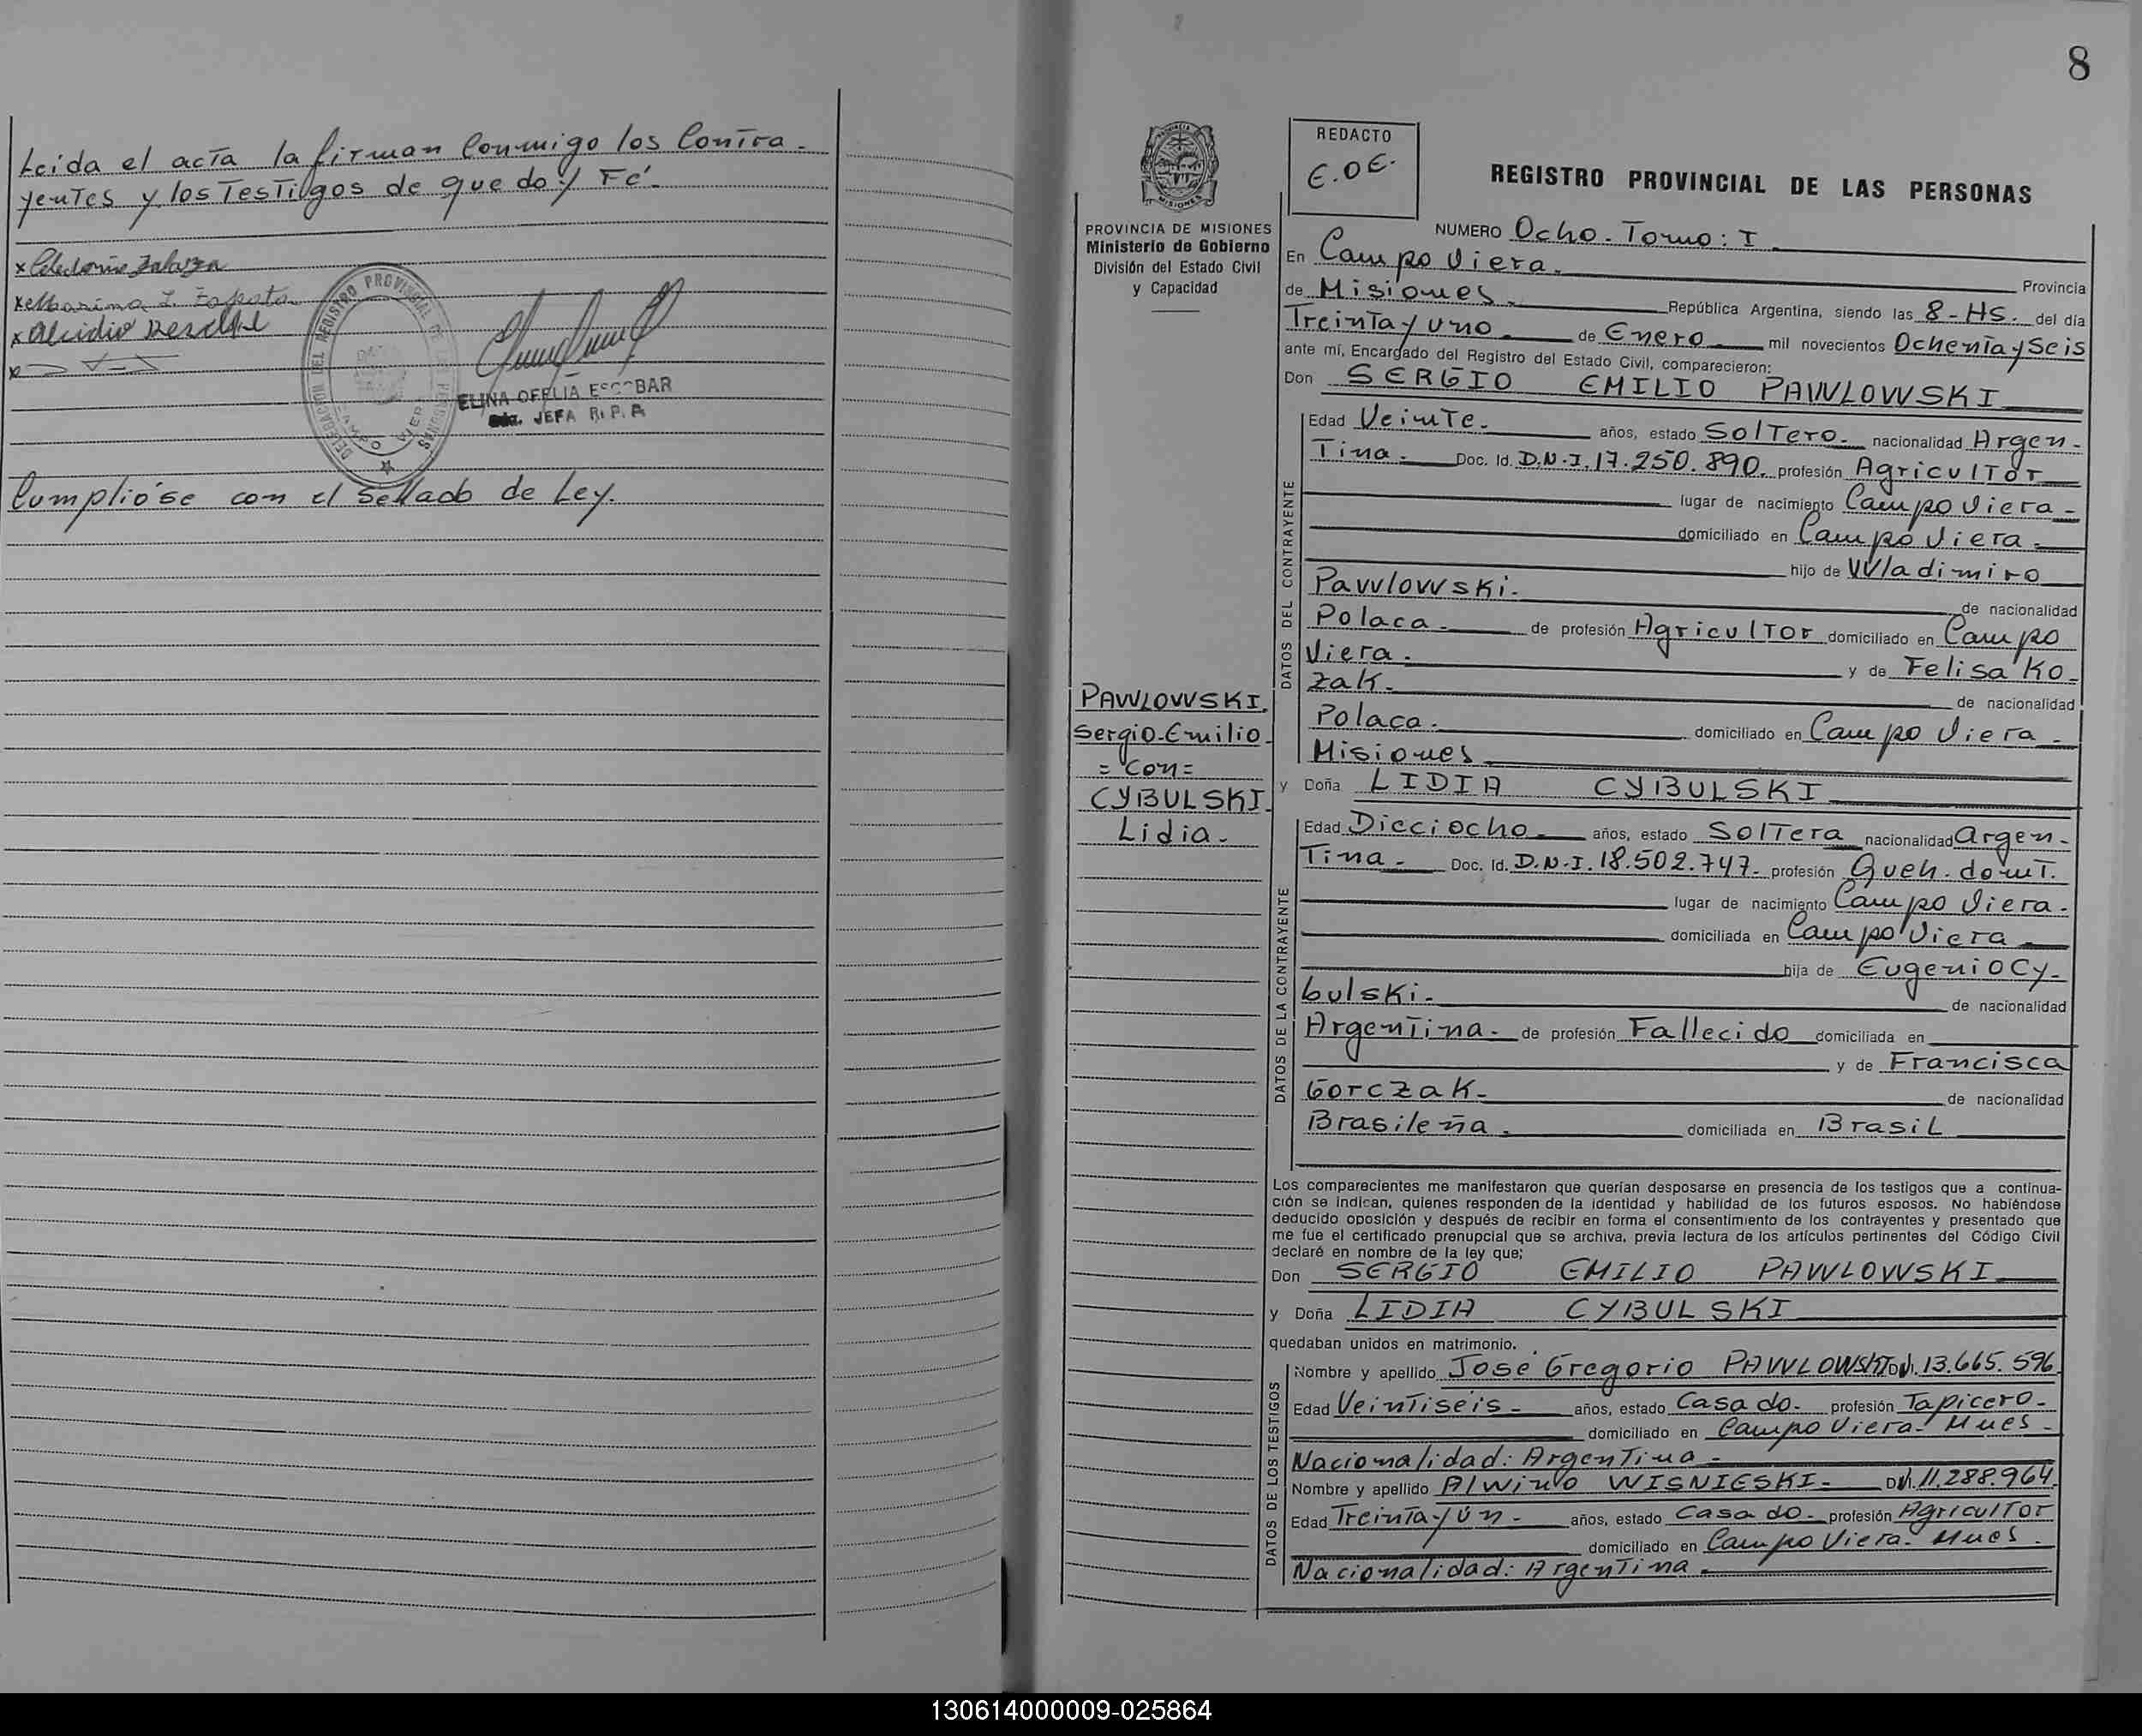 Leida el acta la firman Conmigo los Contra-
yentes y los Testigos de que doy Fé.
Alcidio
DELEGACION DEL REGISTRO PROVINCIAL DE LAS PERSONAS
CAMPO VIERA
ELINA OFELIA ESCOBAR
JEFA R. P. P.
Cumplióse con el Sellado de Ley.
8
PROVINCIA DE MISIONES
Ministerio de Gobierno
División del Estado Civil
y Capacidad
PAWLOWSKI.
Sergio-Emilio
= Con =
CYBULSKI
Lidia.-
REDACTO
E.O.E.
REGISTRO PROVINCIAL DE LAS PERSONAS
NUMERO Ocho. Tomo: I
En Campo Viera. Provincia
de Misiones. República Argentina, siendo las 8-HS. del día
Treinta y uno de Enero mil novecientos Ochenta y Seis
ante mí, Encargado del Registro del Estado Civil, comparecieron:
Don SERGIO EMILIO PAWLOWSKI
DATOS DEL CONTRAYENTE
Edad Veinte. años, estado Soltero. nacionalidad Argen-
Tina. Doc. Id. D.N.I. 17.250.890. profesión Agricultor
lugar de nacimiento Campo Viera-
domiciliado en Campo Viera.
hijo de Wladimiro
Pawlowski. de nacionalidad
Polaca. de profesión Agricultor domiciliado en Campo
Viera. y de Felisa Ko-
zak. de nacionalidad
Polaca. domiciliado en Campo Viera.
Misiones
y Doña LIDIA CYBULSKI
DATOS DE LA CONTRAYENTE
Edad Dieciocho años, estado Soltera nacionalidad Argen-
Tina. Doc. Id. D.N.I. 18.502.747. profesión Queh. domt.
lugar de nacimiento Campo Viera.
domiciliada en Campo Viera
hija de Eugenio Cy-
bulski. de nacionalidad
Argentina. de profesión Fallecido domiciliada en
y de Francisca
Gorczak. de nacionalidad
Brasileña. domiciliada en Brasil
Los comparecientes me manifestaron que querían desposarse en presencia de los testigos que a continua-
ción se indican, quienes responden de la identidad y habilidad de los futuros esposos. No habiéndose
deducido oposición y después de recibir en forma el consentimiento de los contrayentes y presentado que
me fue el certificado prenupcial que se archiva, previa lectura de los artículos pertinentes del Código Civil
declaré en nombre de la ley que;
Don SERGIO EMILIO PAWLOWSKI
y Doña LIDIA CYBULSKI
quedaban unidos en matrimonio.
DATOS DE LOS TESTIGOS
Nombre y apellido José Gregorio PAWLOWSKI DNI. 13.665.596
Edad Veintiseis años, estado Casado. profesión Tapicero-
domiciliado en Campo Viera-Mnes-
Nacionalidad: Argentina
Nombre y apellido Alwino WISNIESKI- DNI. 11.288.964.
Edad Treinta y ún. años, estado Casado. profesión Agricultor
domiciliado en Campo Viera. Mnes.
Nacionalidad: Argentina.
130614000009-025864